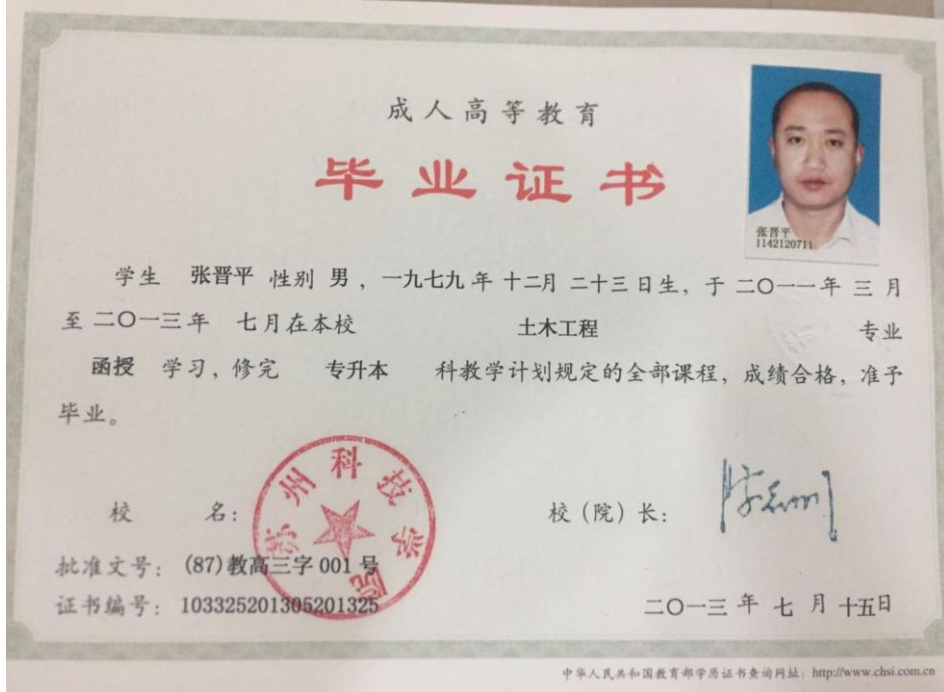 成人高等教育
毕业证书
张晋平
1142120711
学生 张晋平 性别 男，一九七九年 十二月 二十三日生，于二〇一一年 三月
至二〇一三年 七月在本校 土木工程 专业
函授 学习，修完 专升本 科教学计划规定的全部课程，成绩合格，准予
毕业。
苏州科技学院
校 名： 校（院）长：
批准文号：(87)教高三字 001 号
证书编号：103325201305201325
二〇一三年 七月 十五日
中华人民共和国教育部学历证书查询网址：http://www.chsi.com.cn